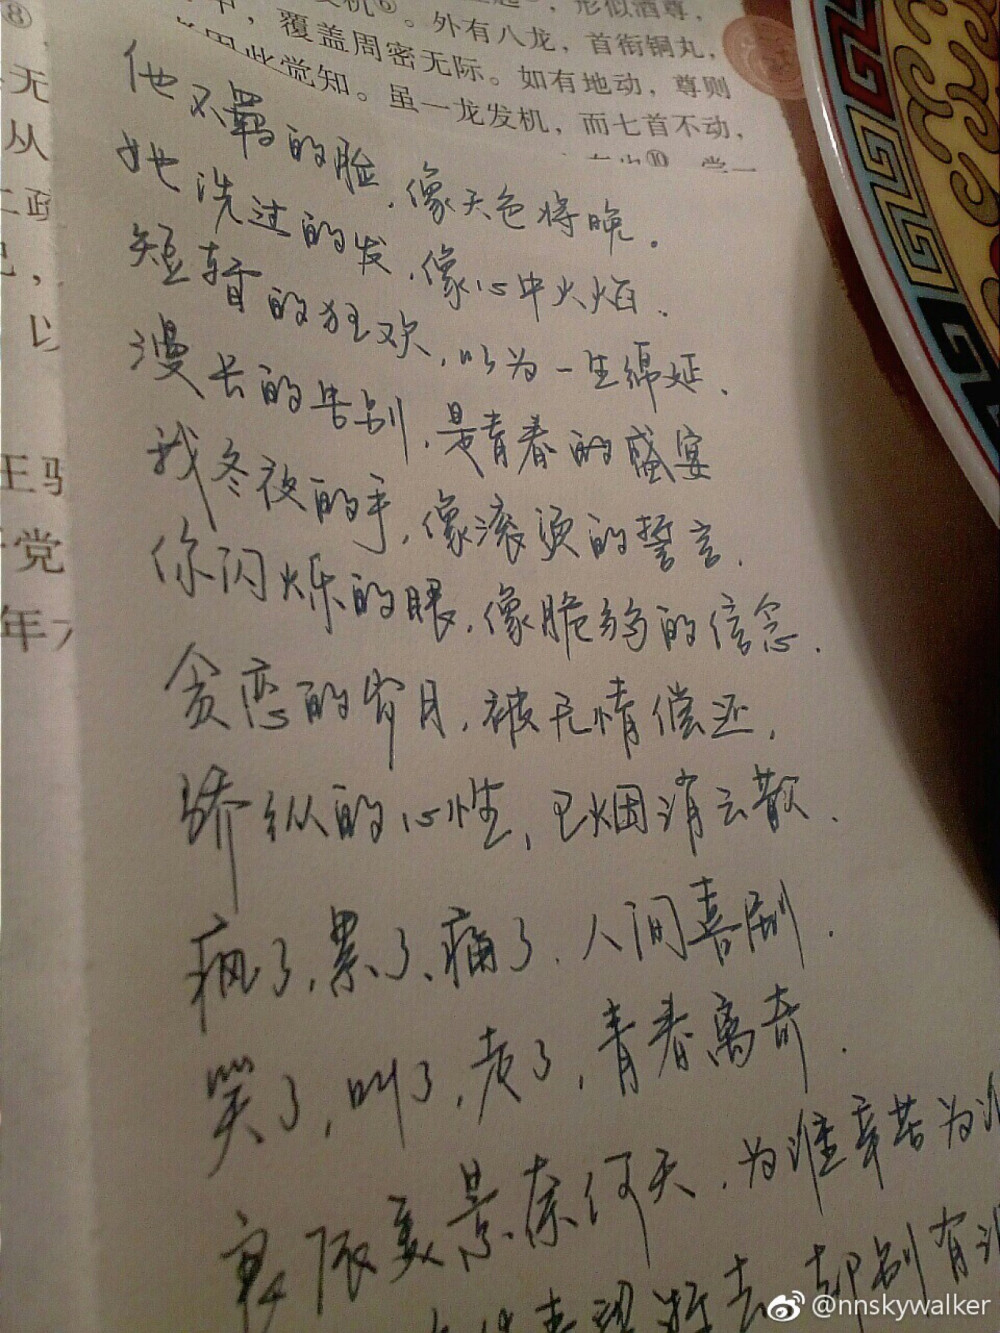 ⑧
无
从
政
以
王
党
年
机⑥。外有八龙，首衔铜丸，
覆盖周密无际。如有地动，尊则
因此觉知。虽一龙发机，而七首不动，
他不羁的脸，像天色将晚。
她洗过的发，像心中火焰．
短暂的狂欢，以为一生绵延．
漫长的告别，是青春的盛宴
我冬夜的手，像滚烫的誓言．
你闪烁的眼，像脆弱的信念．
贪恋的岁月，被无情偿还，
骄纵的心性，已烟消云散．
疯了，累了、痛了．人间喜剧．
笑了，叫了，走了，青春离奇．
良辰美景奈何天．为谁辛苦为
去 却别有
@nnskywalker